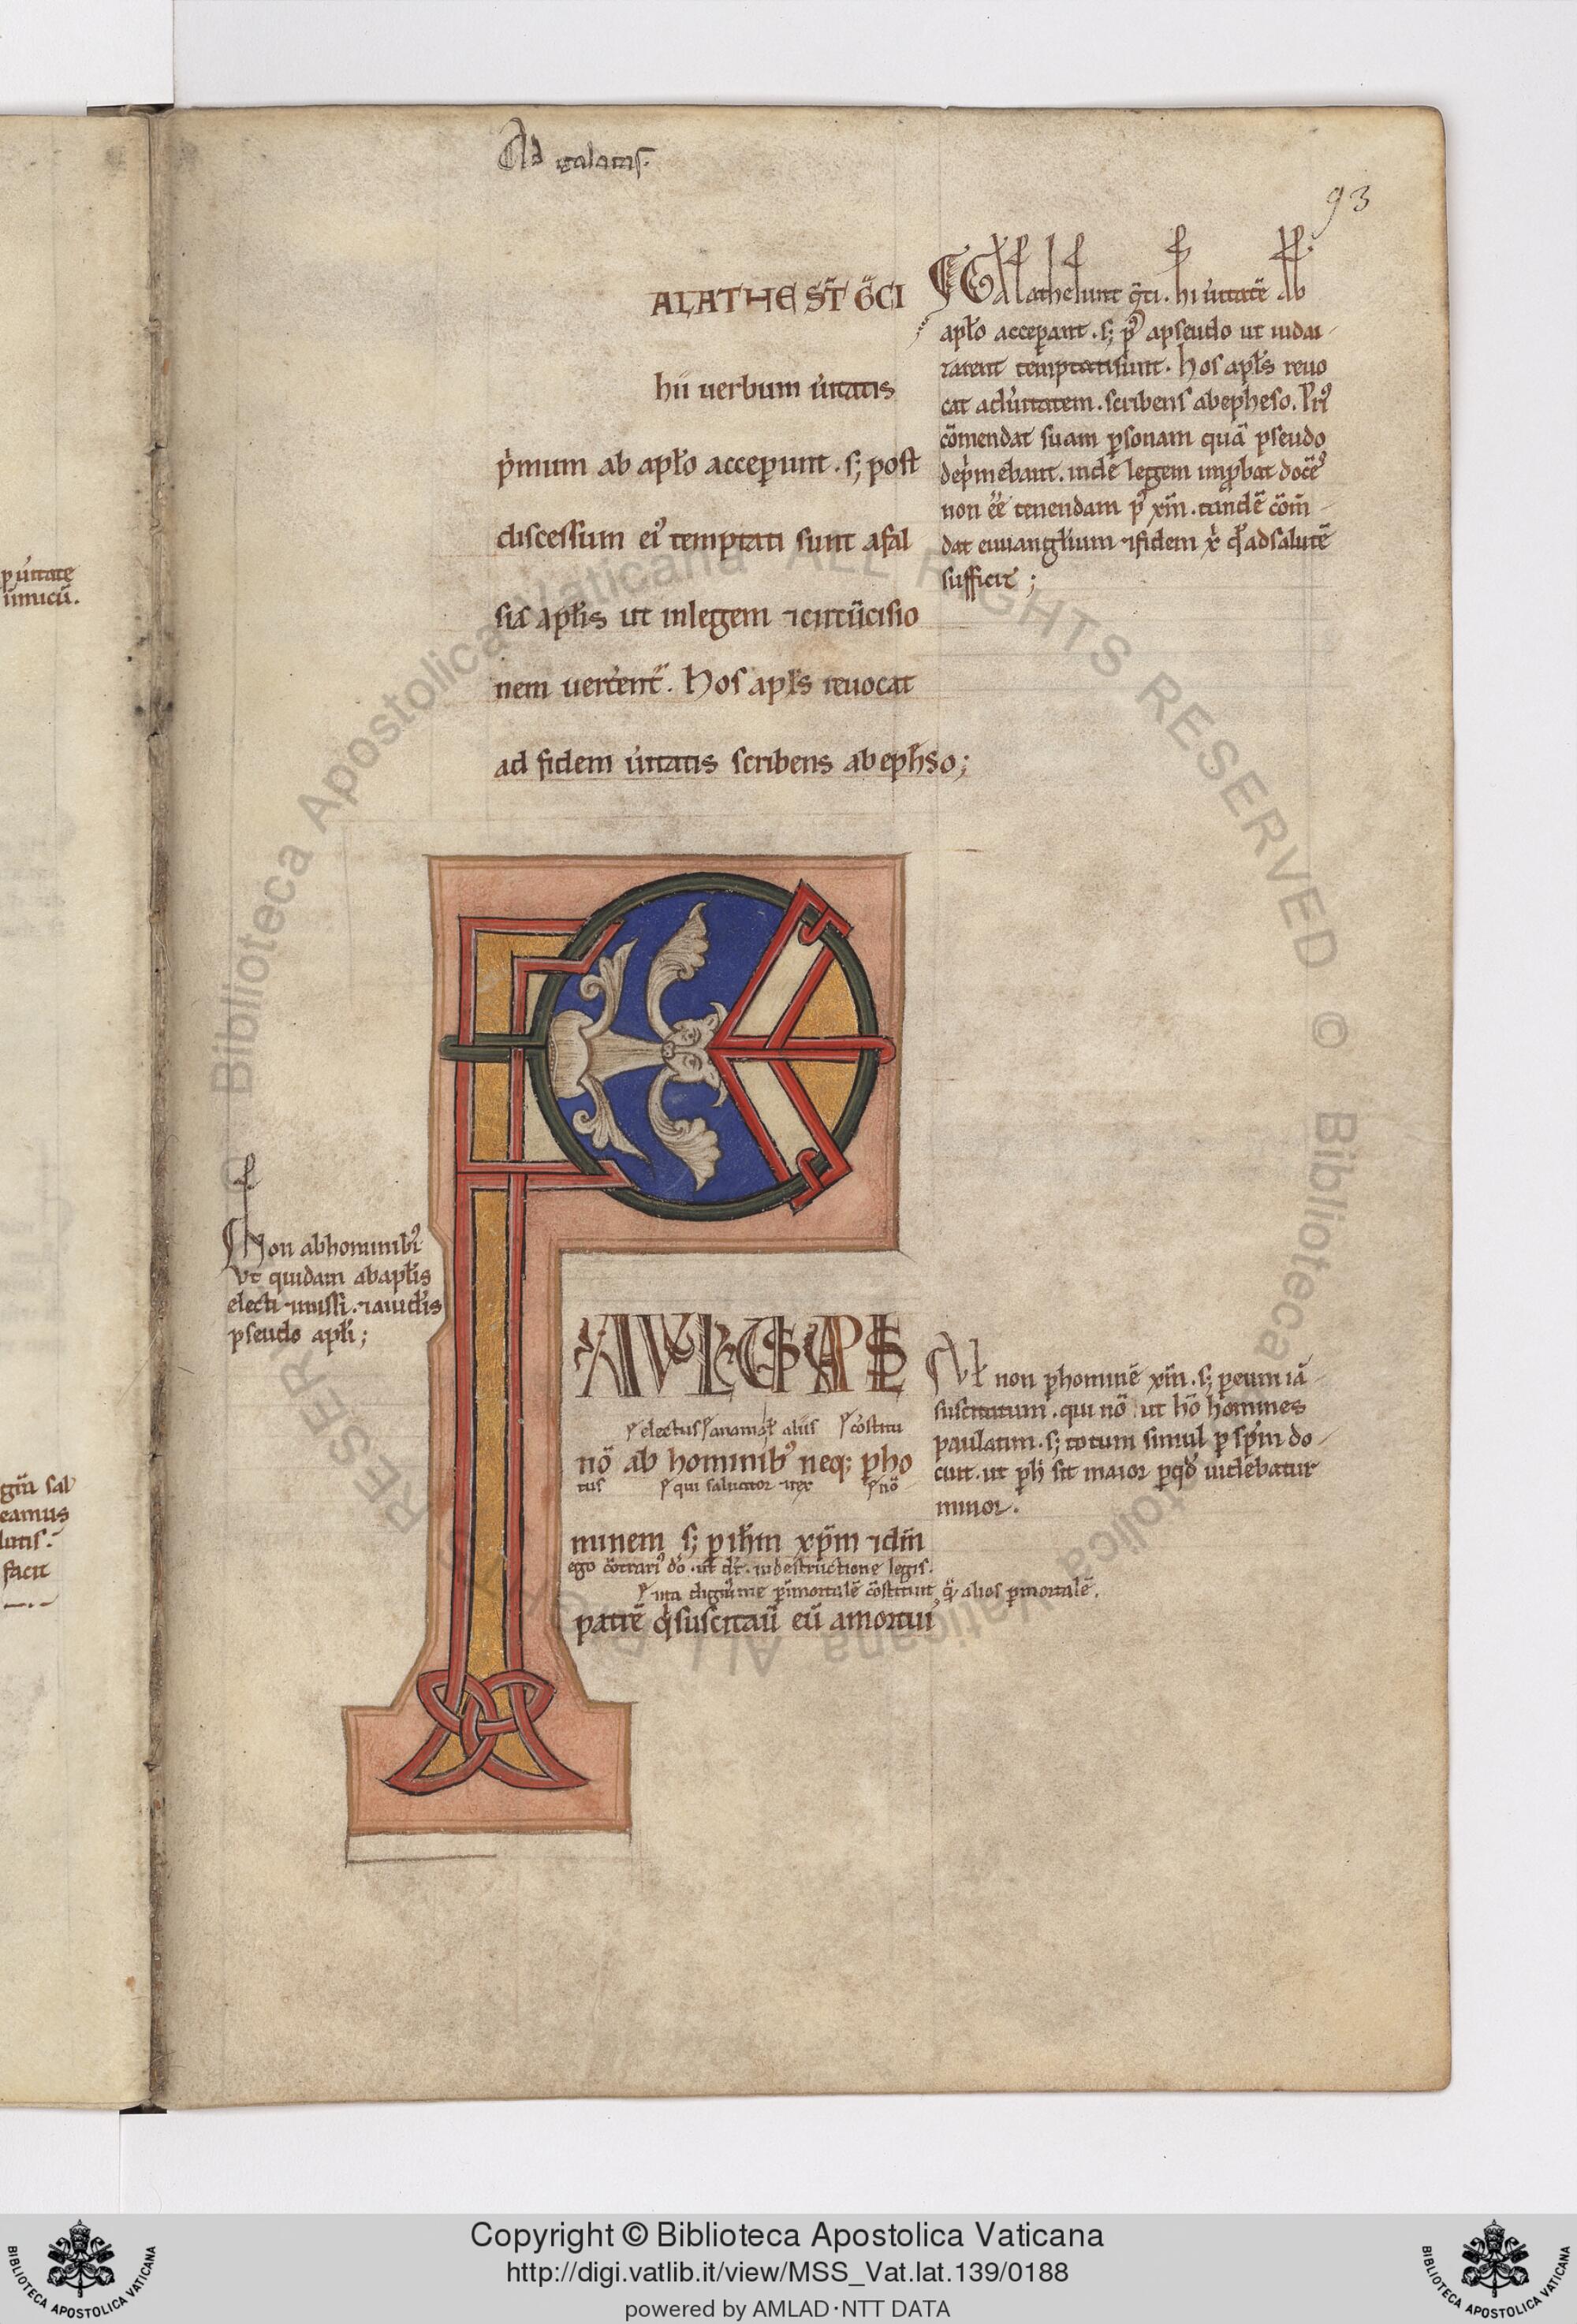 Ad galatas.
93
ALATHE ST̅ G̅CI
hii uerbum ueritatis
p̓mum ab apło acceperunt . s; post
discessum ei᾿ temptati sunt a fal
sis apłis ut in legem ⁊ circu̅cisio
nem uerterent᷑. hos apłs reuocat
ad fidem ueritatis scribens ab epheso;
Galathe sunt g̅ci . hi ueritate̅ ab
apło acceperant . s; p᾿ a pseudo ut iudai-
zarent temptati sunt . hos apłs reuo
cat ad ueritatem . scribens ab epheso . Pri᾿
co̅mendat suam ꝑsonam qua̅ pseudo
dep̓mebant . inde legem inp̱bat doce̅s
non e̅e̅ tenendam p᾿ xp̅m . tande̅ co̅m̅-
dat euuangłium ⁊ fidem x̓ q̓ ad salute̅
sufficit ;
Non ab hominib᾿
Vt quidam ab apłis
electi ⁊ missi . ⁊ a iudeis
pseudo apłi ;
PAVLUS APLS
electus aliis co̅stitu
no̅ ab hominib᾿ neq; ꝑ ho
tus qui saluator ⁊ rex no̅
minem s; ꝑ ih̅m xp̅m ⁊ dm̅
ego co̅trari᾿ in destructione legis .
me ꝑ inmortale̅ co̅stituit alios ꝑ mortale̅ .
patre̅ q̓ suscitauit eu̅ a mortui
Vł non ꝑ homine̅ xp̅m . s; ꝑ eum ia̅
suscitatum . qui no̅ ut ho̅ homines
paulatim . s; totum simul ꝑ sp̅m do-
cuit . ut ꝑ h̅ sit maior ꝑ qd̅ uidebatur
minor .
ꝑ ueritate
inimicu̅.
giu̅ sal
eamus
facit
© Biblioteca Apostolica Vaticana ALL RIGHTS RESERVED © Biblioteca Apostolica Vaticana ALL RIGHTS RESERVED
Copyright © Biblioteca Apostolica Vaticana
http://digi.vatlib.it/view/MSS_Vat.lat.139/0188
powered by AMLAD·NTT DATA
BIBLIOTECA APOSTOLICA VATICANA
BIBLIOTECA APOSTOLICA VATICANA